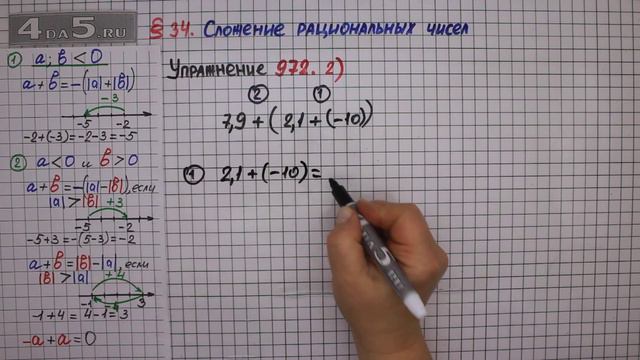 4DA5.RU
§ 34. Сложение рациональных чисел
1) a; b < 0
a + b = -(|a| + |b|)
-3
-5 -2
-2+(-3)=-2-3=-5
2) a < 0 и b > 0
a + b = -(|a|-|b|), если
|a| > |b| +3
-5 -2
-5+3=-(5-3)=-2
a + b = |b|-|a|, если
|b| > |a| +4
-1 3
-1+4=4-1=3
-a+a=0
Упражнение 972. 2)
2 1
7,9 + (2,1 + (-10))
1) 2,1 + (-10) =